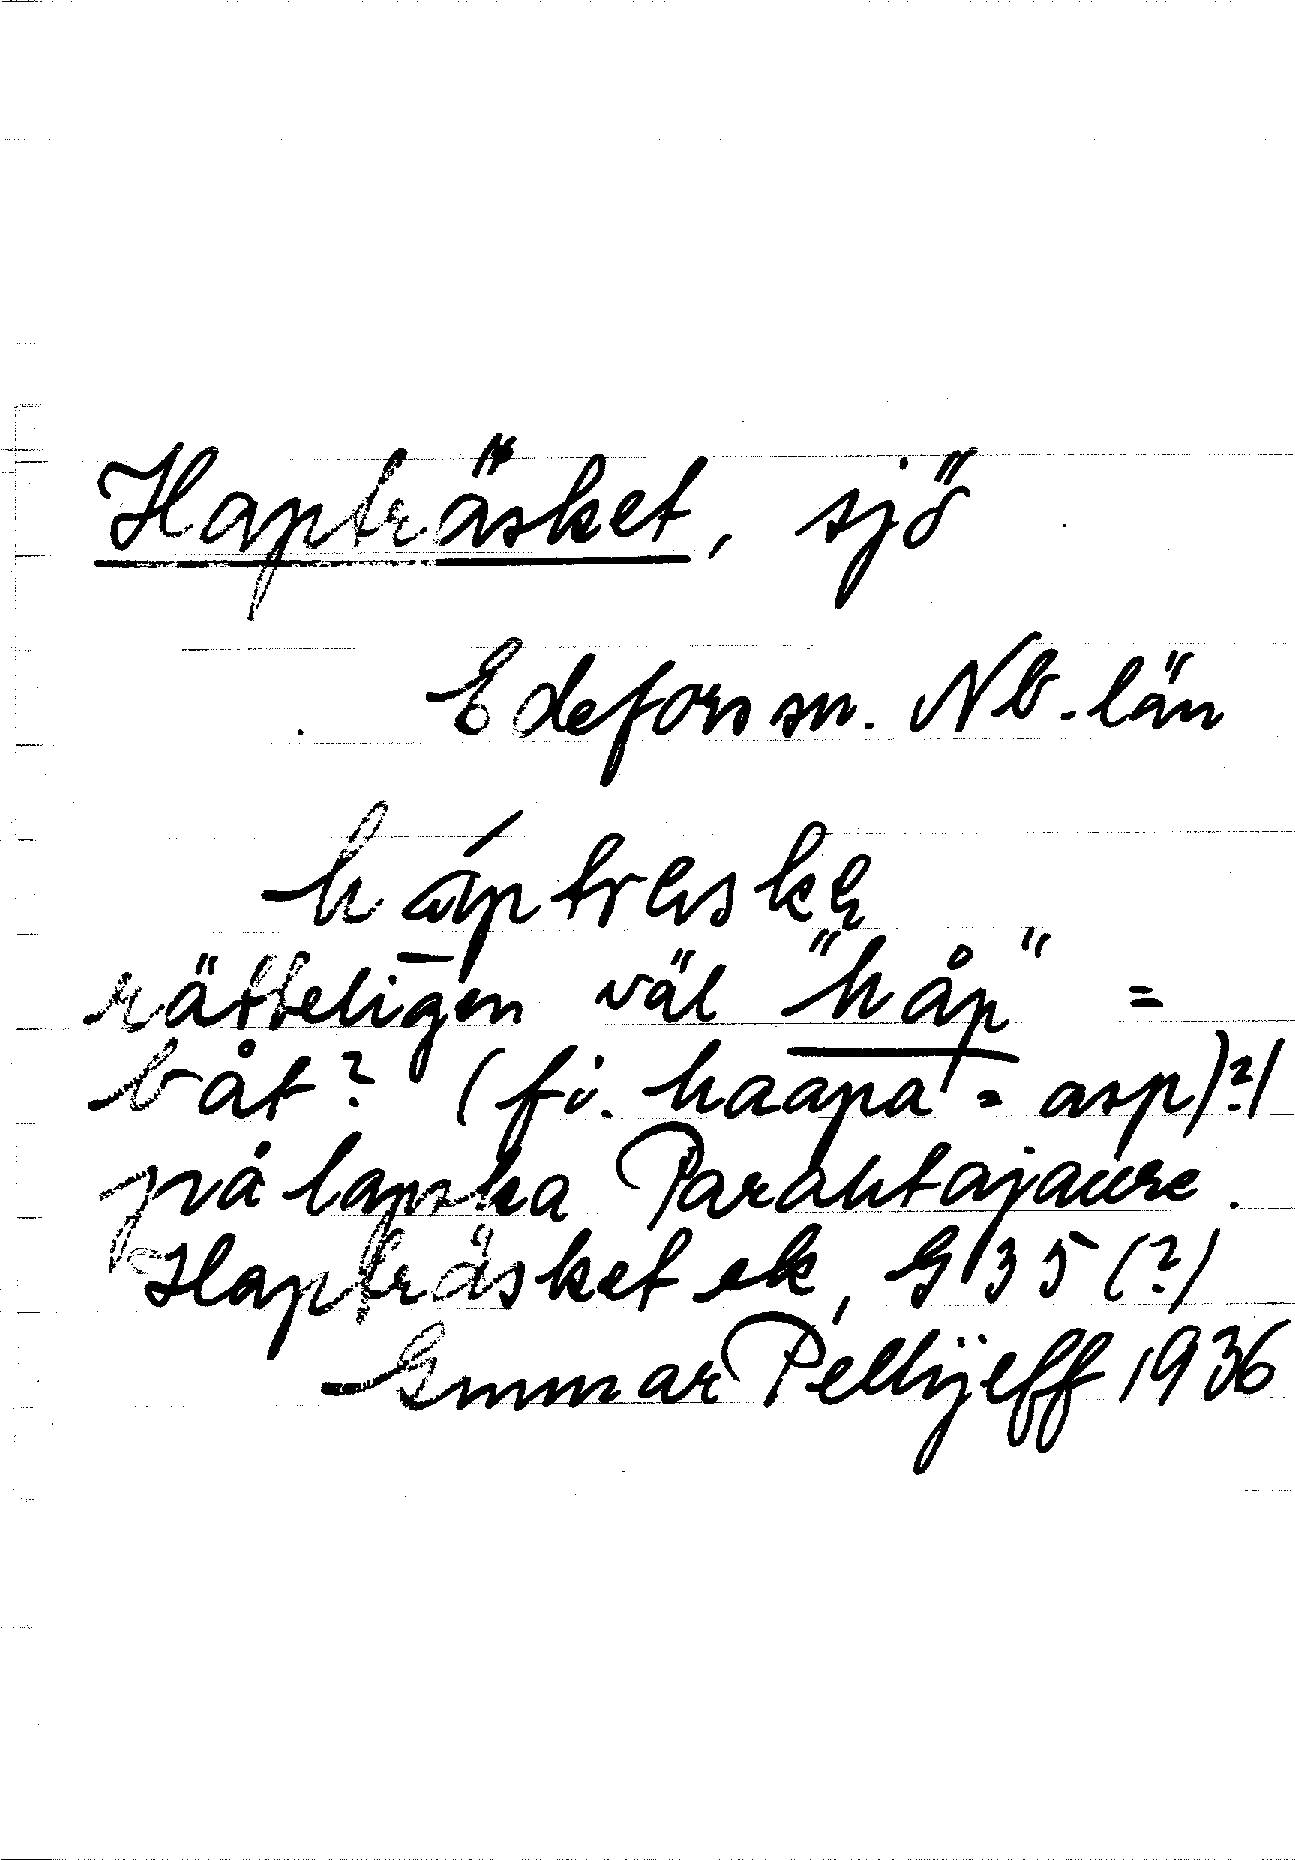 Hapträsket, sjö
Edefors sn. Nb. län
rätteligen väl "håp" =
båt? (fi. haapa = asp)?)
på lapska Parahtajaure.
Hapträsket ek, G 35 (?)
Gunnar Pellijeff 1936